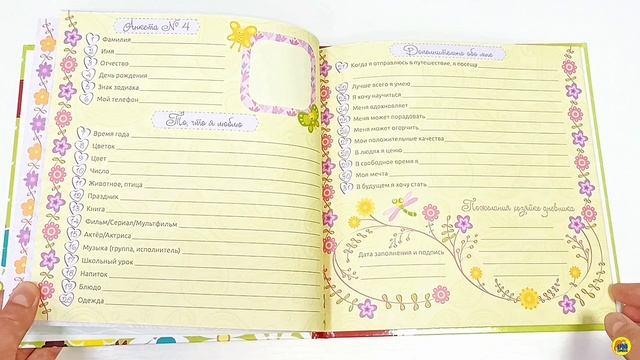 Анкета № 4
1 Фамилия
2 Имя
3 Отчество
4 День рождения
5 Знак зодиака
6 Мой телефон
То, что я люблю
7 Время года
8 Цветок
9 Цвет
10 Число
11 Животное, птица
12 Праздник
13 Книга
14 Фильм/Сериал/Мультфильм
15 Актёр/Актриса
16 Музыка (группа, исполнитель)
17 Школьный урок
18 Напиток
19 Блюдо
20 Одежда
Дополнительно обо мне
21 Когда я отправлюсь в путешествие, я посещу
Лучше всего я умею
Я хочу научиться
Меня вдохновляет
Меня может порадовать
Меня может огорчить
Мои положительные качества
В людях я ценю
В свободное время я
Моя мечта
В будущем я хочу стать
Пожелания хозяйке дневника
Дата заполнения и подпись